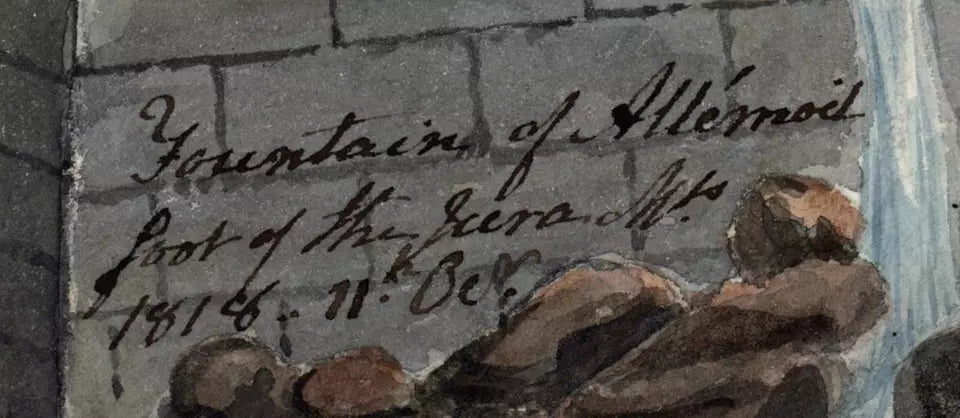 Fountain of Allémoil
foot of the Jura Mts
1818. 11th Octr.